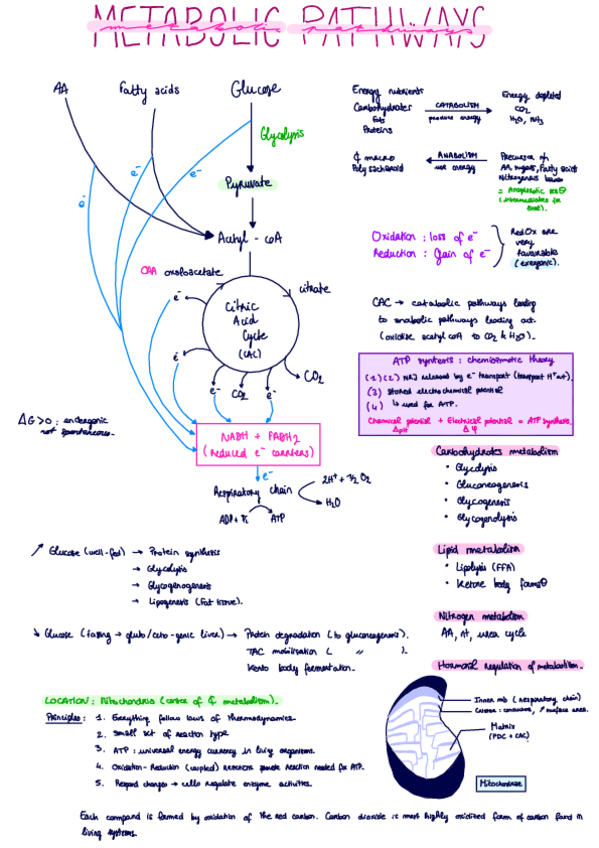 METABOLIC PATHWAYS
metabolic pathways
AA
Fatty acids
Glucose
Glycolysis
e⁻
e⁻
e⁻
Pyruvate
Acetyl - coA
OAA oxaloacetate
citrate
e⁻
Citric
Acid
Cycle
(CAC)
e⁻
e⁻
CO₂
e⁻
CO₂
ΔG>0 : endergonic
not spontaneous.
NADH + FADH₂
(reduced e⁻ carriers)
e⁻
Respiratory chain
2H⁺ + ½ O₂
H₂O
ADP + Pi
ATP
Energy nutrients
Carbohydrates
Fats
Proteins
CATABOLISM
produce energy
Energy depleted
CO₂
H₂O, NH₃
macro
Poly saccharoid
ANABOLISM
use energy
Precursor of
AA, sugars, Fatty acids
Nitrogenous bases
= Anaplerotic
(intermediates for
Oxidation : loss of e⁻
Reduction : Gain of e⁻
RedOx are
very
favourable
(exergonic).
CAC → catabolic pathways leading
to anabolic pathways leading out.
(oxidise acetyl coA to CO₂ & H₂O).
ATP syntesis : chemiosmotic theory
(1)(2) released by e⁻ transport (transport H⁺ out).
(3) stored electrochemical potential
(4) ↳ used for ATP.
Chemical potential + Electrical potential = ATP synthase.
ΔpH Δψ
Carbohydrates metabolism
• Glycolysis
• Gluconeogenesis
• Glycogenesis
• Glycogenolysis
Lipid metabolism
• Lipolysis (FFA)
• Ketone body
Nitrogen metabolism
AA, urea cycle
Hormonal regulation of metabolism.
↗ Glucose (well-fed) → Protein synthesis
→ Glycolysis
→ Glycogenogenesis
→ Lipogenesis (Fat tissue).
↘ Glucose (fasting → liver) → Protein degradation (to gluconeogenesis).
TAC mobilisation ( " ).
Keto body fermentation.
LOCATION : Mitochondria (center of metabolism).
Principles : 1. Everything follows laws of thermodynamics.
2. Small set of reaction type
3. ATP : universal energy currency in living organisms.
4. Oxidation - Reduction (coupled) reactions provide reaction needed for ATP.
5. Respond changes → cells regulate enzyme activities.
Inner mb (respiratory chain)
↗ surface area.
Matrix
(PDC + CAC)
Mitochondriae
Each compound is formed by oxidation of the red carbon. Carbon dioxide is most highly oxidised form of carbon found in
living systems.